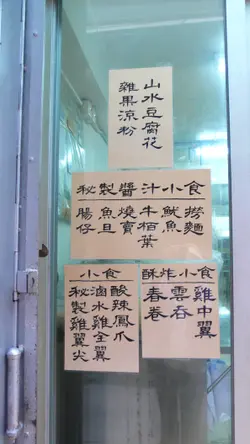 山水豆腐花
雜果涼粉
秘製醬汁小食
撈麵
魷魚
牛栢葉
燒賣
魚旦
腸仔
小食
酸辣鳳爪
滷水雞全翼
秘製雞翼尖
酥炸小食
雞中翼
雲吞
春卷